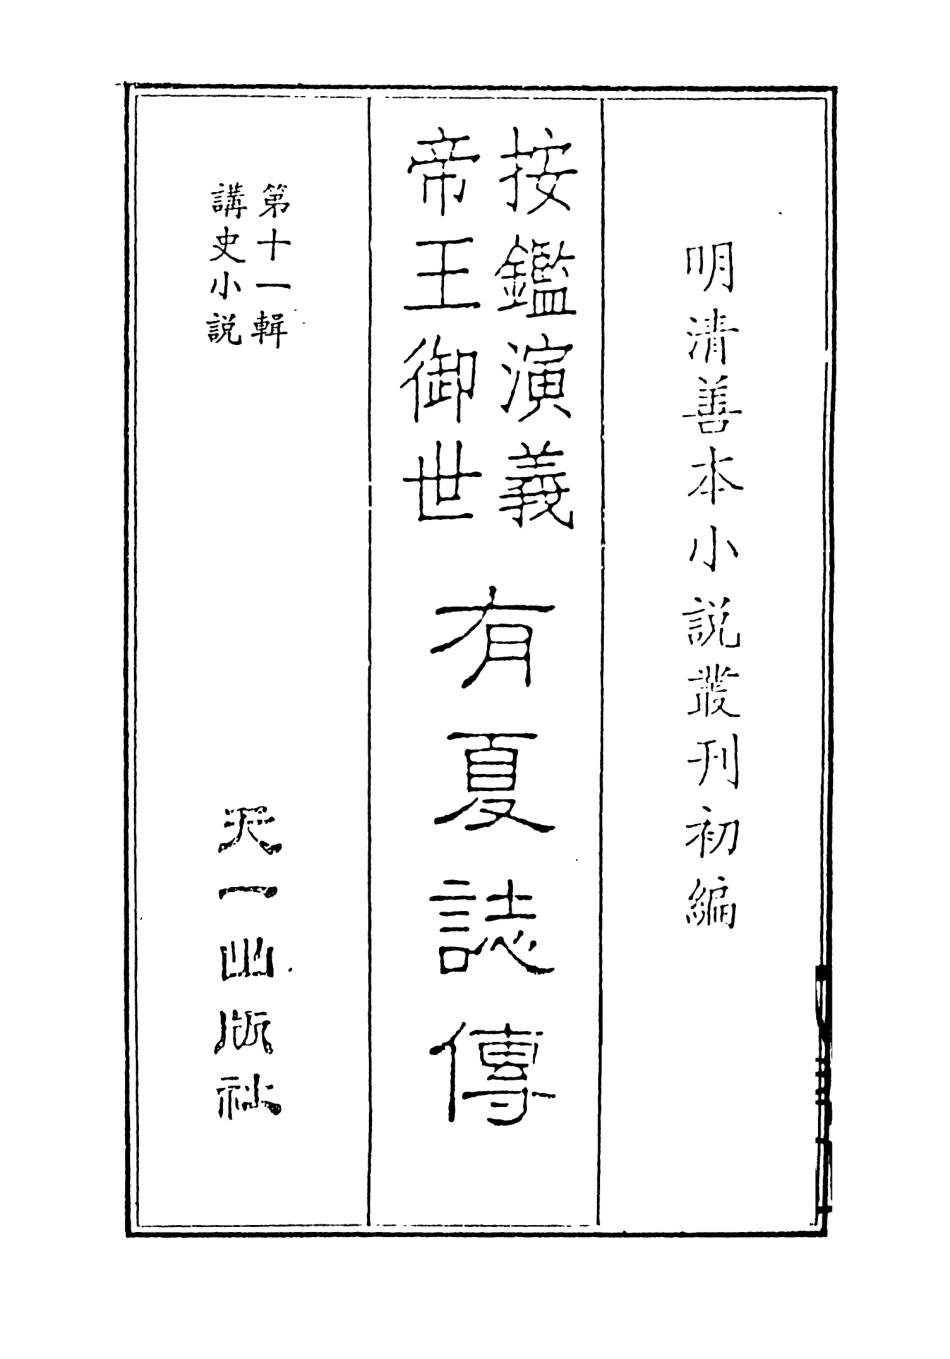 明清善本小説叢刊初編
按鑑演義
帝王御世
有夏誌傳
第十一輯
講史小説
天一出版社